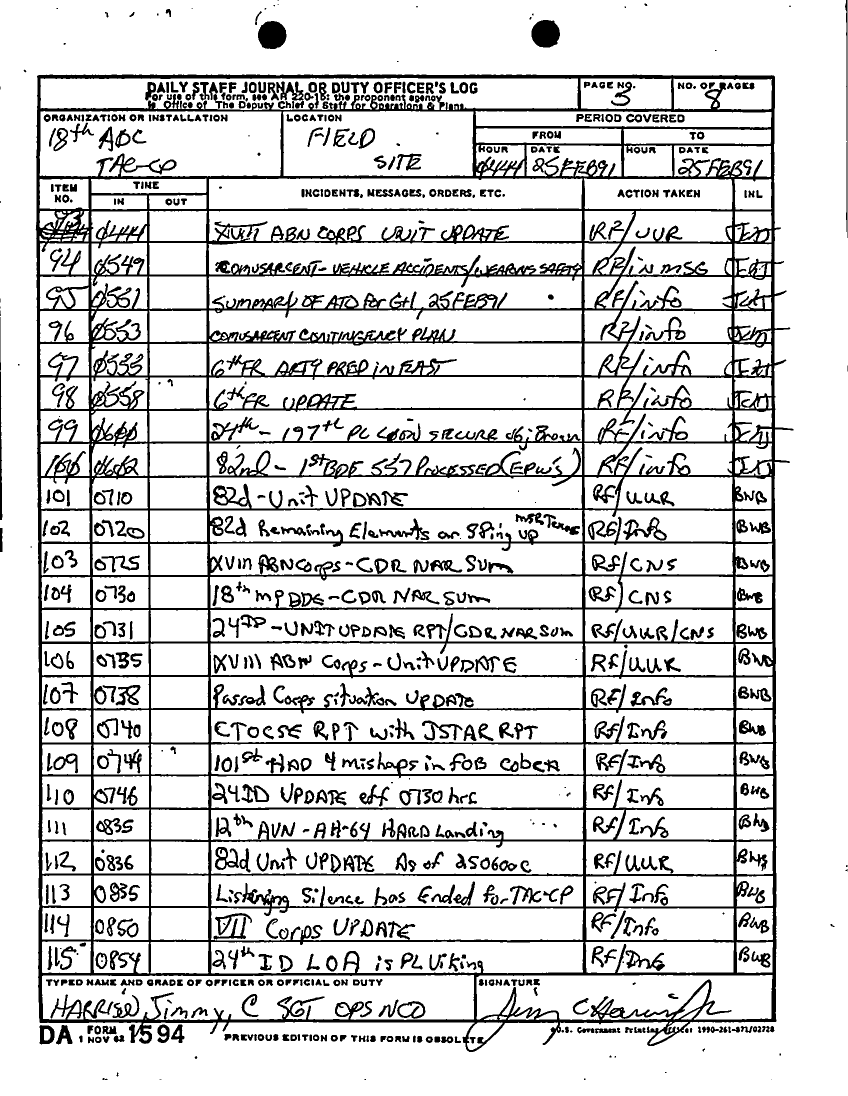 DAILY STAFF JOURNAL OR DUTY OFFICER'S LOG
For use of this form, see AR 220-15; the proponent agency
is Office of The Deputy Chief of Staff for Operations & Plans.
PAGE NO.
5
NO. OF PAGES
8
ORGANIZATION OR INSTALLATION
18th ABC
TAC-CP
LOCATION
FIELD
SITE
PERIOD COVERED
FROM
TO
HOUR
DATE
HOUR
DATE
0444
25FEB91
25FEB91
ITEM NO.
TIME
IN
OUT
INCIDENTS, MESSAGES, ORDERS, ETC.
ACTION TAKEN
INL
93 0444 XVIII ABN CORPS UNIT UPDATE RF/UUR
94 0549 COMUSARCENT-VEHICLE ACCIDENTS/WEAPONS SAFETY RF/IN MSG
95 0551 SUMMARY OF ATO For G+1, 25FEB91 RF/info
96 0553 COMUSARCENT CONTINGENCY PLAN RF/info
97 0555 6th FR ARTY PREP IN EAST RF/info
98 0558 6th FR UPDATE RF/info
99 0600 24th - 197th PL LOON SECURE obj Brown RF/info
100 0602 82nd - 1st BDE 537 Processed (EPW's) RF/info
101 0710 82d-Unit UPDATE RF/UUR BWB
102 0720 82d Remaining Elements on MSR Texas UP RF/Info BWB
103 0725 XVIII ABN Corps-CDR NAR Sum RF/CNS BWB
104 0730 18th MP BDE-CDR NAR Sum RF/CNS BWB
105 0731 24ID-UNIT UPDATE RPT/CDR NAR Sum RF/UUR/CNS BWB
106 0735 XVIII ABN Corps-Unit UPDATE RF/UUR BWB
107 0738 Passed Corps situation UPDATE RF/Info BWB
108 0740 CTOCSE RPT with JSTAR RPT RF/Info BWB
109 0744 101st HAD 4 mishaps in FOB Cobra RF/Info BWB
110 0746 24ID UPDATE eff 0730 hrs RF/Info BWB
111 0835 12th AVN-AH-64 HARD Landing RF/Info BWB
112 0836 82d Unit UPDATE As of 250600C RF/UUR BWB
113 0835 Listening Silence has Ended for TAC-CP RF/Info BWB
114 0850 VII Corps UPDATE RF/Info BWB
115 0854 24th ID LOA is PL Viking RF/Info BWB
TYPED NAME AND GRADE OF OFFICER OR OFFICIAL ON DUTY
HARRISON, Jimmy, C SGT OPS NCO
SIGNATURE
DA FORM 1 NOV 62 1594
PREVIOUS EDITION OF THIS FORM IS OBSOLETE.
U.S. Government Printing Office: 1990-261-871/02728